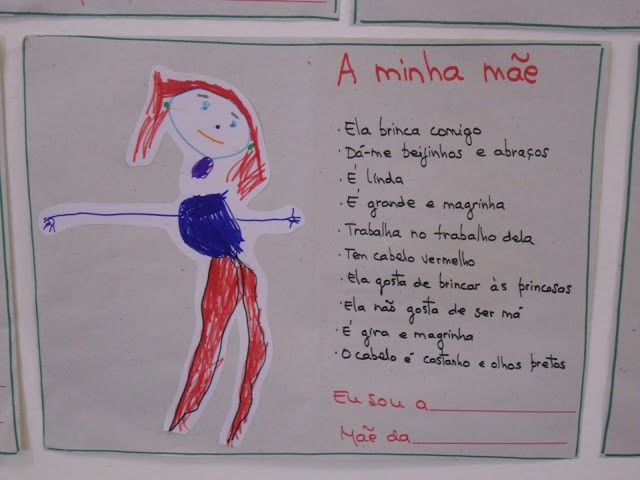 A minha mãe
· Ela brinca comigo
· Dá-me beijinhos e abraços
· É linda
· É grande e magrinha
· Trabalha no trabalho dela
· Tem cabelo vermelho
· Ela gosta de brincar às princesas
· Ela não gosta de ser má
· É gira e magrinha
· O cabelo é castanho e olhos pretos
Eu sou a
Mãe da